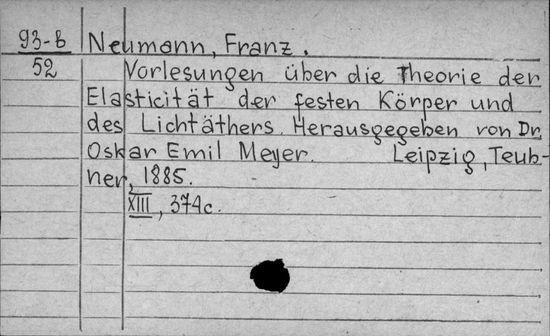 93-B Neumann, Franz.
52 Vorlesungen über die Theorie der
Elasticität der festen Körper und
des Lichtäthers. Herausgegeben von Dr.
Oskar Emil Meyer. Leipzig, Teub-
ner, 1885.
XIII, 374c.